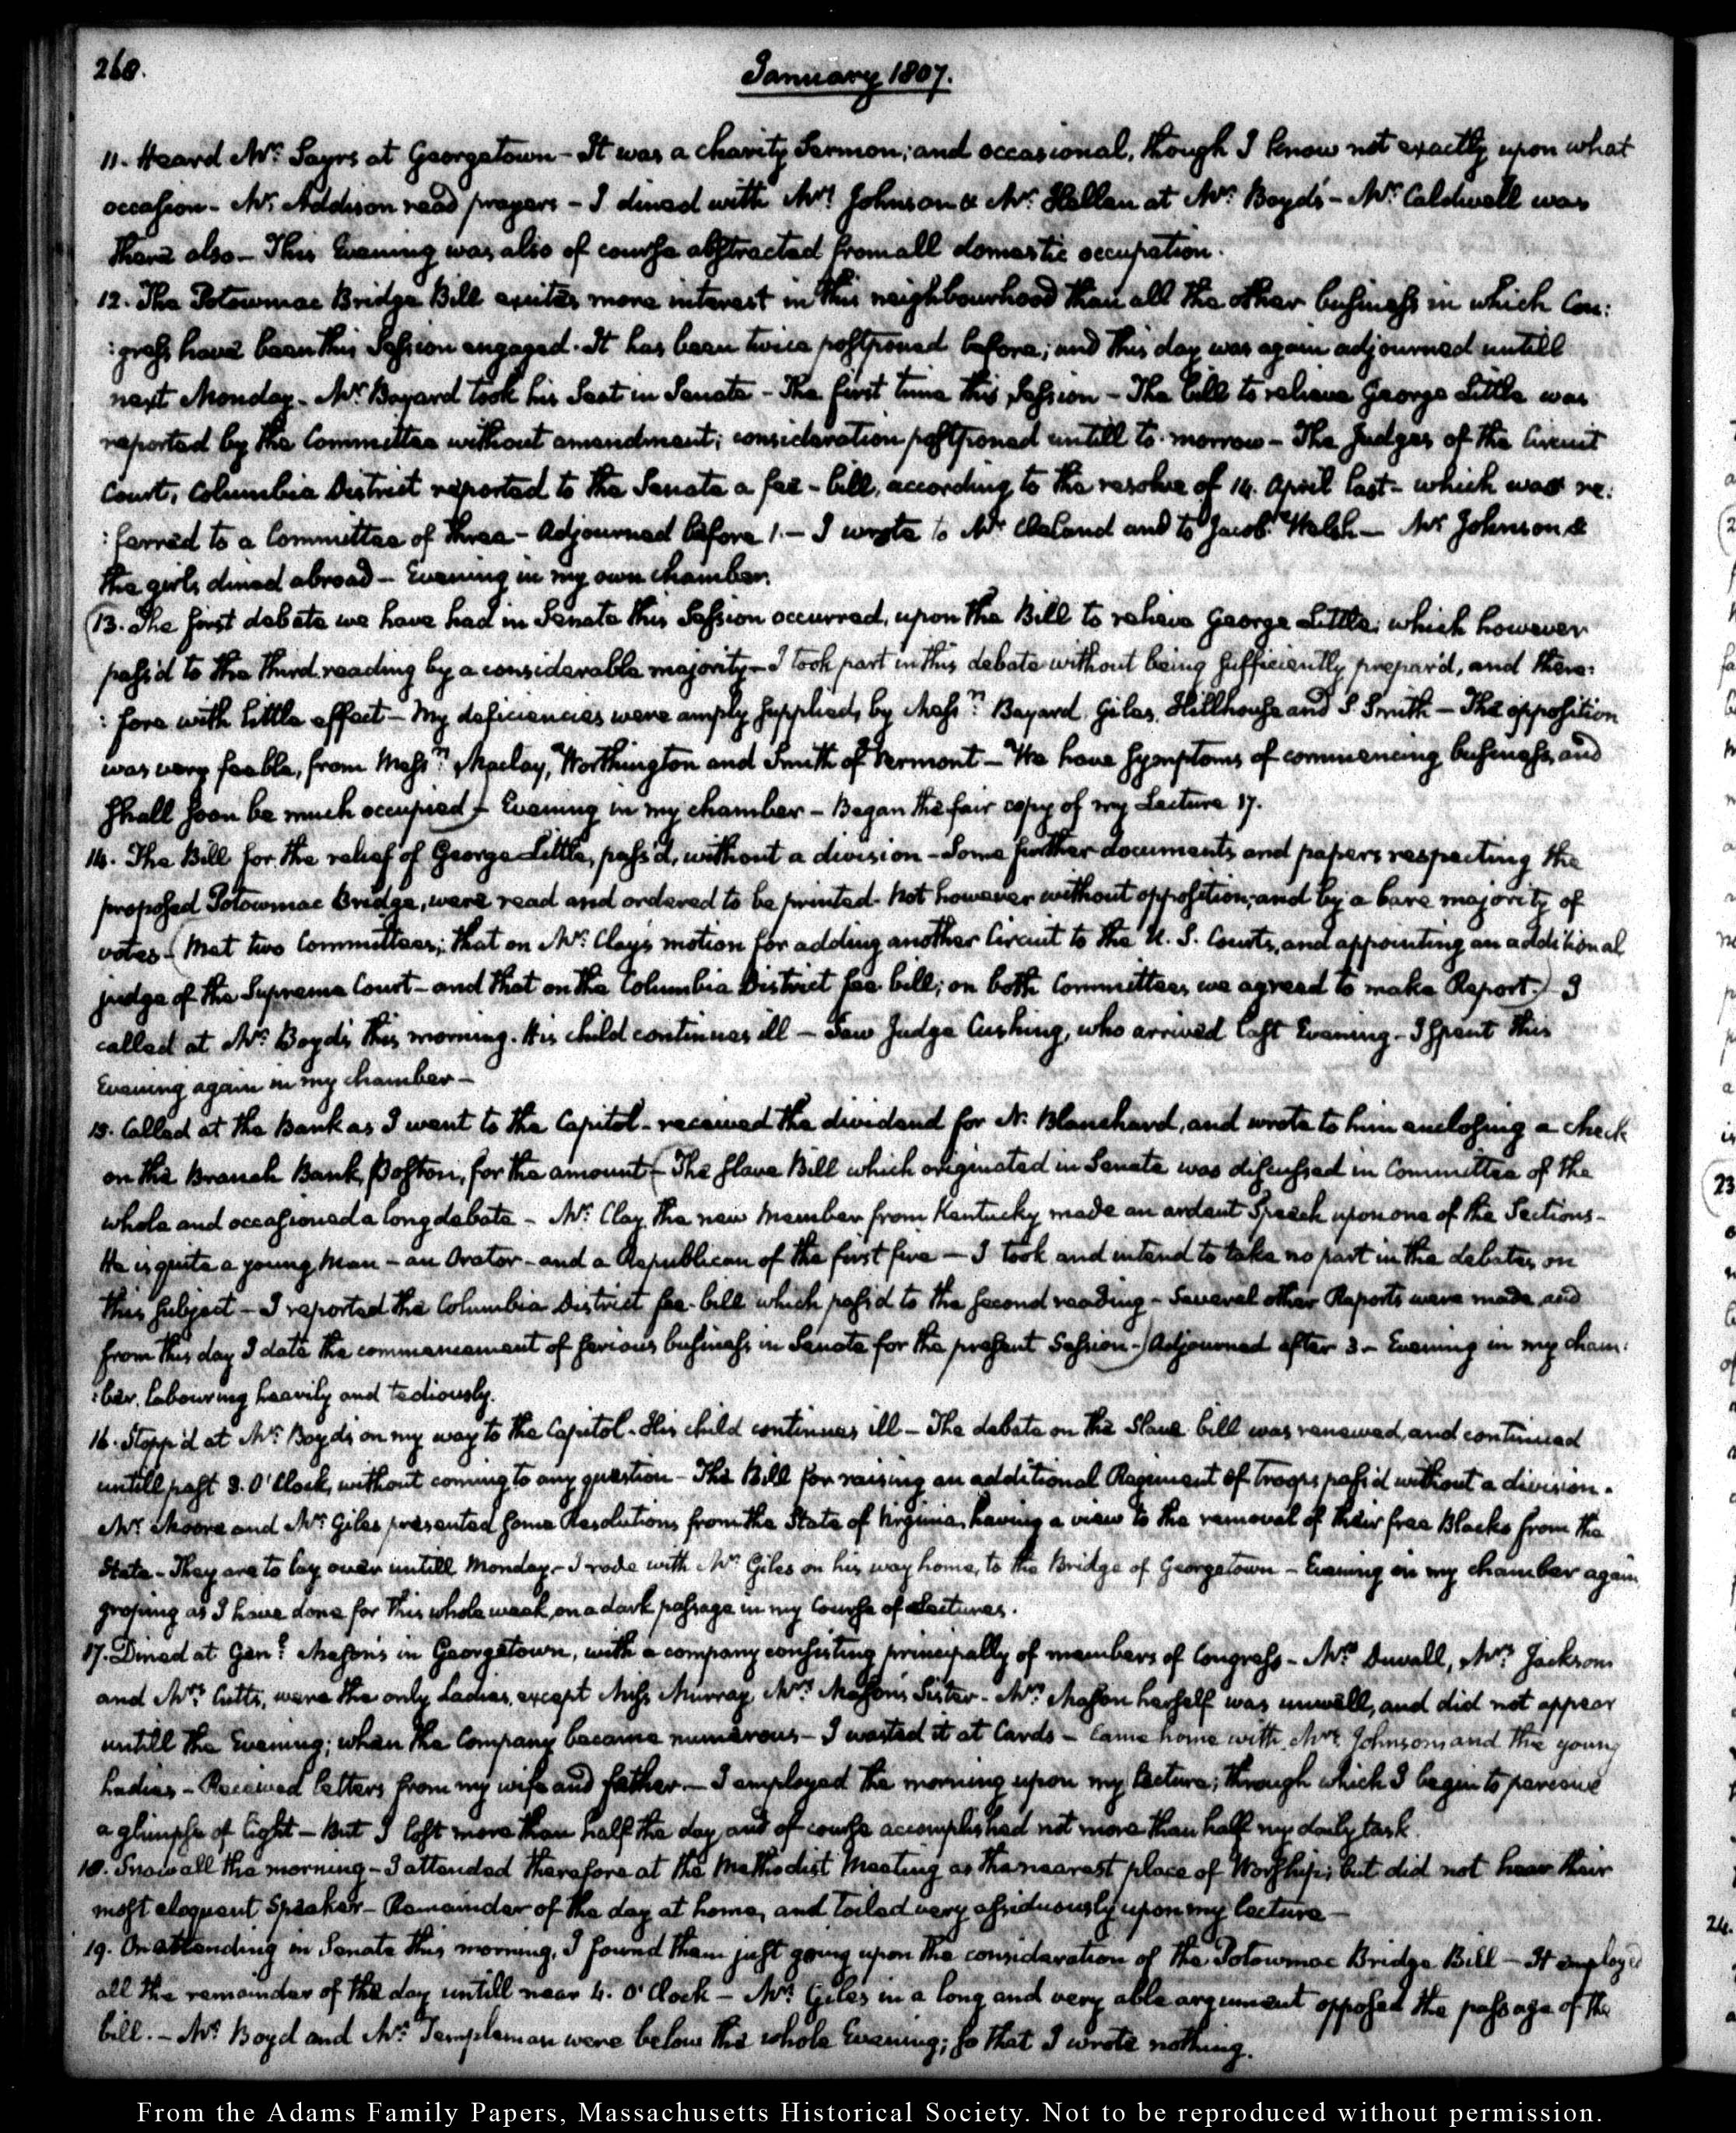 260.
January 1807.
11. Heard Mr. Sayrs at Georgetown - It was a charity Sermon; and occasional, though I know not exactly upon what
occasion - Mr. Addison read prayers - I dined with Mrs. Johnson & Mr. Hellen at Mr. Boyd's - Mr. Caldwell was
there also - This Evening was also of course abstracted from all domestic occupation.
12. The Potowmac Bridge Bill excites more interest in this neighbourhood than all the other business in which Con:
:gress have been this Session engaged. It has been twice postponed before; and this day was again adjourned untill
next Monday - Mr. Bayard took his Seat in Senate - The first time this Session - The bill to relieve George Little was
reported by the Committee without amendment; consideration postponed untill to-morrow - The Judges of the Circuit
Court, Columbia District reported to the Senate a fee-bill, according to the resolve of 14. April last - which was re:
:ferred to a Committee of three - Adjourned before 1. - I wrote to Mr. Cleland and to Jacob Welsh - Mrs. Johnson &
the girls dined abroad - Evening in my own chamber.
(13. The first debate we have had in Senate this Session occurred, upon the Bill to relieve George Little; which however
pass'd to the third reading by a considerable majority - I took part in this debate without being sufficiently prepar'd, and there:
:fore with little effect - My deficiencies were amply supplied, by Messrs. Bayard, Giles, Hillhouse and S. Smith - The opposition
was very feeble, from Messrs. Maclay, Worthington and Smith of Vermont - We have symptoms of commencing business, and
shall soon be much occupied) - Evening in my chamber - Began the fair copy of my Lecture 17.
14. The Bill for the relief of George Little, pass'd, without a division - Some further documents and papers respecting the
proposed Potowmac Bridge, were read and ordered to be printed - not however without opposition; and by a bare majority of
votes - (Met two Committees; that on Mr. Clay's motion for adding another Circuit to the U. S. Courts, and appointing an additional
judge of the Supreme Court - and that on the Columbia District fee bill; on both Committees we agreed to make Report.) I
called at Mr. Boyd's this morning. His child continues ill - Saw Judge Cushing, who arrived last Evening - I spent this
Evening again in my chamber -
15. Called at the Bank as I went to the Capitol - received the dividend for N. Blanchard, and wrote to him enclosing a check
on the Branch Bank, Boston, for the amount - (The Slave Bill which originated in Senate was discussed in Committee of the
whole and occasioned a long debate - Mr. Clay the new Member from Kentucky made an ardent Speech upon one of the Sections -
He is quite a young Man - an Orator - and a Republican of the first fire - I took and intend to take no part in the debates on
this subject - I reported the Columbia District fee-bill which pass'd to the second reading - Several other Reports were made, and
from this day I date the commencement of serious business in Senate for the present Session -) Adjourned after 3 - Evening in my cham:
:ber, labouring heavily and tediously.
16. Stopp'd at Mr. Boyd's on my way to the Capitol. His child continues ill - The debate on the Slave bill was renewed, and continued
untill past 3. O'Clock, without coming to any question - The Bill for raising an additional Regiment of troops pass'd without a division -
Mr. Moore and Mr. Giles presented some Resolutions from the State of Virginia, having a view to the removal of their free Blacks from the
State - They are to lay over untill Monday - I rode with Mr. Giles on his way home, to the Bridge of Georgetown - Evening in my chamber again
groping as I have done for this whole week, on a dark passage in my Course of Lectures.
17. Dined at Genl. Mason's in Georgetown, with a company consisting principally of members of Congress - Mrs. Duvall, Mrs. Jackson
and Mrs. Cutts, were the only Ladies, except Miss Murray, Mrs. Mason's Sister - Mrs. Mason herself was unwell, and did not appear
untill the Evening; when the Company became numerous - I wasted it at Cards - Came home with Mrs. Johnson and the young
Ladies - Received letters from my wife and father - I employed the morning upon my lecture; through which I begin to perceive
a glimpse of light - But I lost more than half the day, and of course accomplished not more than half my daily task.
18. Snow all the morning - I attended therefore at the Methodist Meeting as the nearest place of Worship; but did not hear their
most eloquent Speaker - Remainder of the day at home, and toiled very assiduously upon my lecture -
19. On attending in Senate this morning, I found them just going upon the consideration of the Potowmac Bridge Bill - It employed
all the remainder of the day untill near 4. O'Clock - Mr. Giles in a long and very able argument opposed the passage of the
bill. - Mr. Boyd and Mr. Templeman were below the whole Evening; so that I wrote nothing.
23
24.
From the Adams Family Papers, Massachusetts Historical Society. Not to be reproduced without permission.